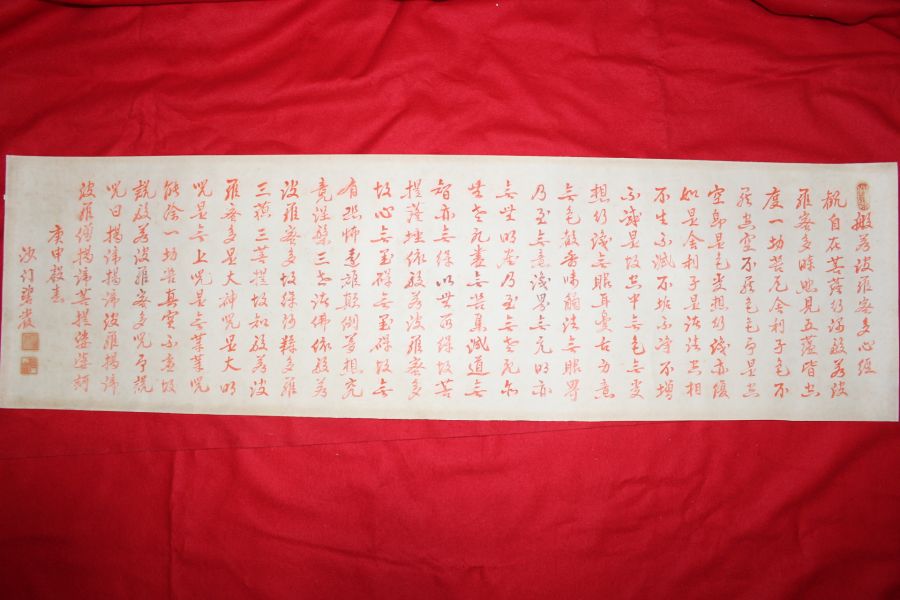 般若波羅蜜多心經
觀自在菩薩行深般若波
羅蜜多時照見五蘊皆空
度一切苦厄舍利子色不
異空空不異色色即是空
空即是色受想行識亦復
如是舍利子是諸法空相
不生不滅不垢不淨不增
不減是故空中無色無受
想行識無眼耳鼻舌身意
無色聲香味觸法無眼界
乃至無意識界無無明亦
無無明盡乃至無老死亦
無老死盡無苦集滅道無
智亦無得以無所得故菩
提薩埵依般若波羅蜜多
故心無罣礙無罣礙故無
有恐怖遠離顛倒夢想究
竟涅槃三世諸佛依般若
波羅蜜多故得阿耨多羅
三藐三菩提故知般若波
羅蜜多是大神咒是大明
咒是無上咒是無等等咒
能除一切苦真實不虛故
說般若波羅蜜多咒即說
咒曰揭諦揭諦波羅揭諦
波羅僧揭諦菩提薩婆訶
庚申
沙門